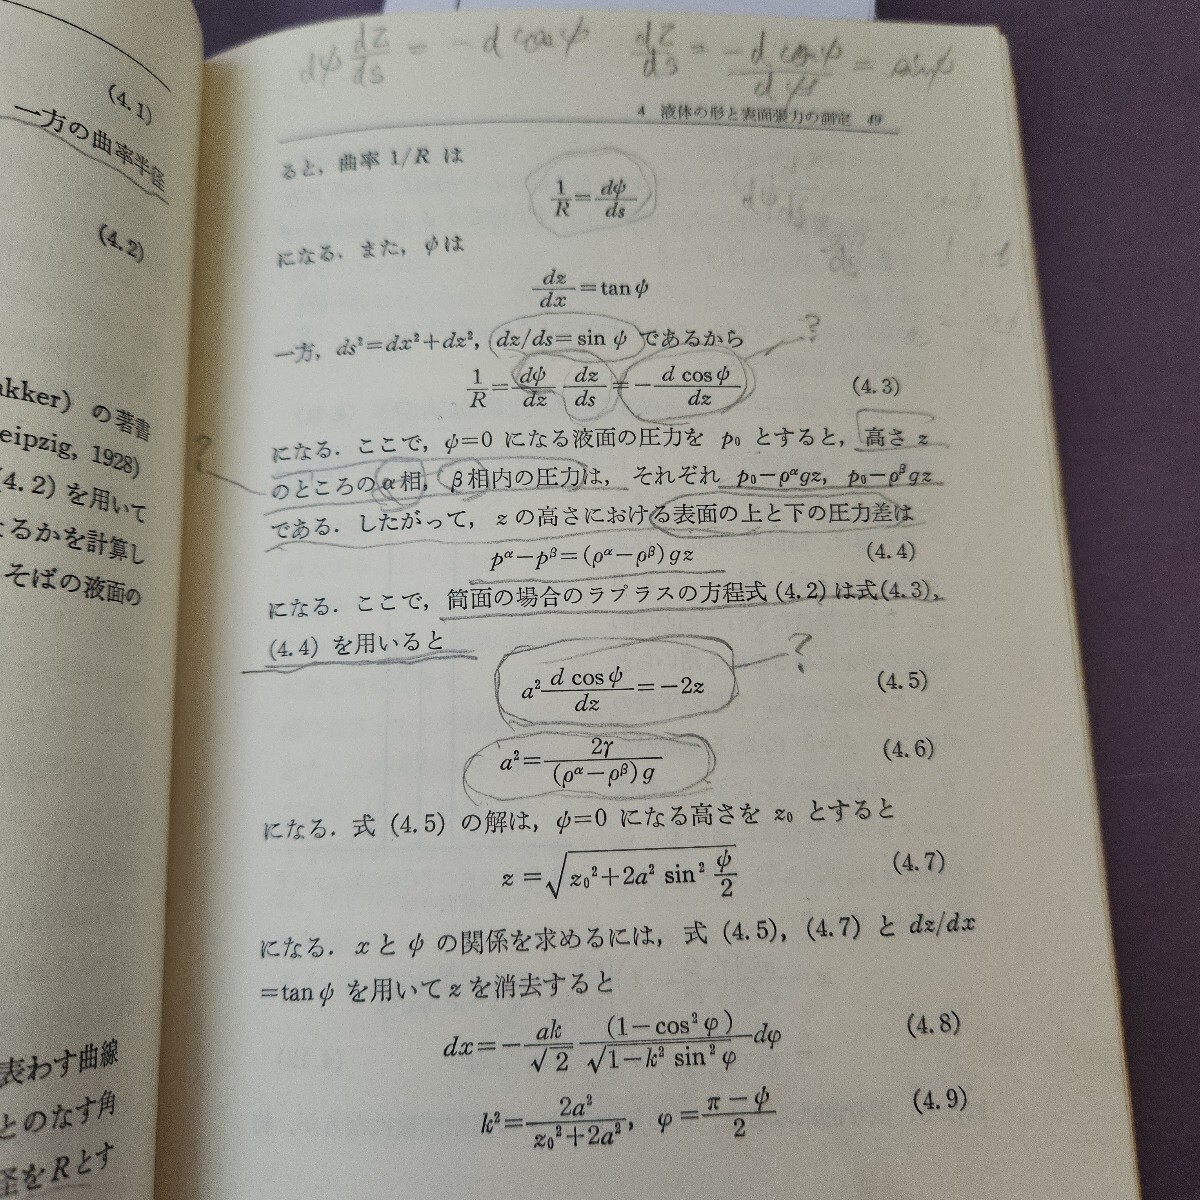 (4.1)
一方の曲率半径
(4.2)
akker) の著書
eipzig, 1928)
(4.2) を用いて
なるかを計算し
そばの液面の
表わす曲線
とのなす角
径を R とす
dψ dz/ds = - d cos ψ dz/ds = - d cos ψ / dψ = sin ψ
4 液体の形と表面張力の測定 49
ると，曲率 1/R は
1/R = dψ/ds
になる．また，ψ は
dz/dx = tan ψ
一方，ds²=dx²+dz²，dz/ds=sin ψ であるから
?
1/R = dψ/dz dz/ds = - d cos ψ/dz (4.3)
になる．ここで，ψ=0 になる液面の圧力を p₀ とすると，高さ z
?
のところの α相，β相内の圧力は，それぞれ p₀-ρᵅgz, p₀-ρᵝgz
である．したがって，z の高さにおける表面の上と下の圧力差は
pᵅ-pᵝ=(ρᵅ-ρᵝ)gz (4.4)
になる．ここで，筒面の場合のラプラスの方程式 (4.2) は式(4.3)，
(4.4) を用いると
?
a² d cos ψ/dz = -2z (4.5)
a² = 2γ/(ρᵅ-ρᵝ)g (4.6)
になる．式 (4.5) の解は，ψ=0 になる高さを z₀ とすると
z = √(z₀²+2a² sin² ψ/2) (4.7)
になる．x と ψ の関係を求めるには，式 (4.5)，(4.7) と dz/dx
=tan ψ を用いて z を消去すると
dx = - ak/√2 (1-cos² φ)/√(1-k² sin² φ) dφ (4.8)
k² = 2a²/(z₀²+2a²), φ = (π-ψ)/2 (4.9)